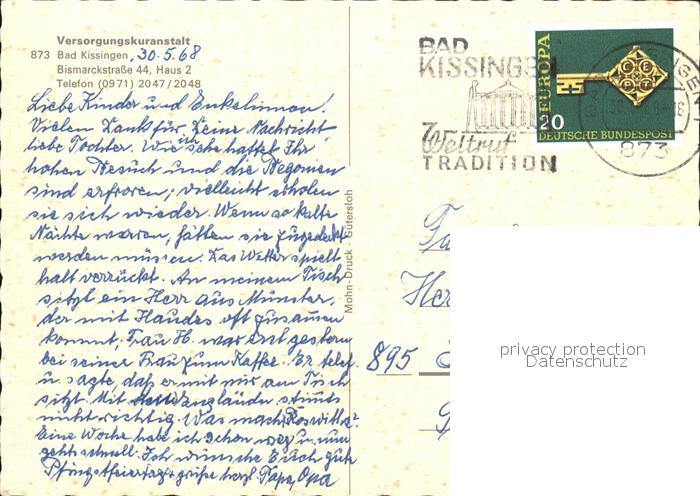 Versorgungskuranstalt
873 Bad Kissingen, 30.5.68
Bismarckstraße 44, Haus 2
Telefon (0971) 2047/2048
Liebe Kinder und Enkelinnen!
Vielen Dank für Deine Nachricht
liebe Tochter. Wie ich sehe hattet Ihr
hohen Besuch und die Begonien
sind erfroren; vielleicht erholen
sie sich wieder. Wenn so kalte
Nächte waren, hätten sie zugedeckt
werden müssen. Das Wetter spielt
halt verrückt. An meinem Tisch
sitzt ein Herr aus Münster,
der mit Haudes oft zusammen
kommt, Frau H. war erst gestern
bei seiner Frau zum Kaffee. Er telef.
u. sagte, daß er mit mir am Tisch
sitzt. Mit stimmt
nicht richtig. Was macht Roswitha?
Eine Woche habe ich schon weg u. nun
gehts schnell. Ich wünsche Euch gute
Pfingstfeiertage grüße herzl. Papa, Opa
Mohn-Druck Gütersloh
BAD
KISSINGEN
Weltruf
TRADITION
EUROPA
CEPT
20
DEUTSCHE BUNDESPOST
873
895
privacy protection
Datenschutz